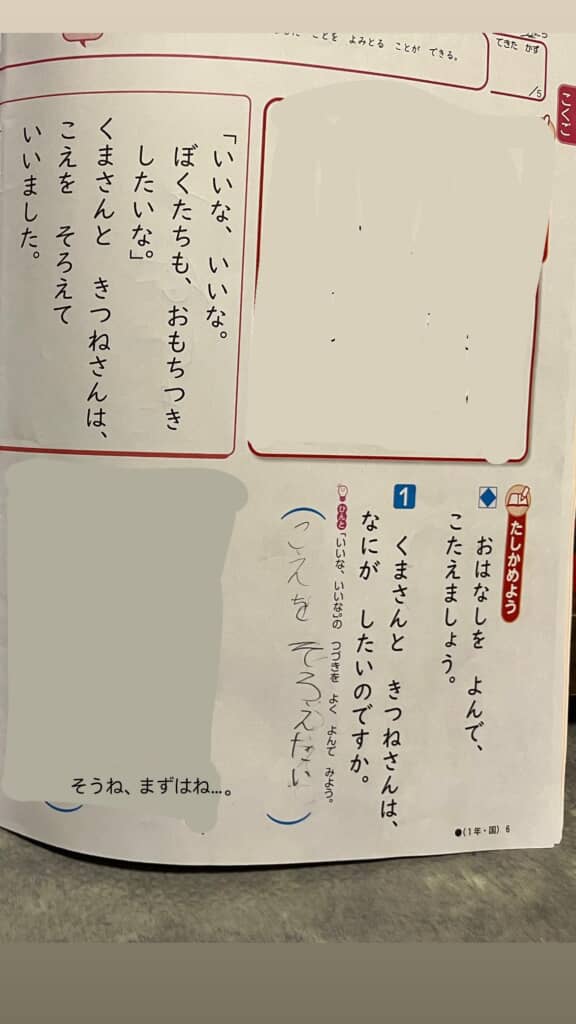 ことを よみとる ことが できる。
できた かず
/5
こくご
「いいな、いいな。
ぼくたちも、おもちつき
したいな」。
くまさんと きつねさんは、
こえを そろえて
いいました。
たしかめよう
おはなしを よんで、
こたえましょう。
1 くまさんと きつねさんは、
なにが したいのですか。
ひんと 「いいな、いいな。」の つづきを よく よんで みよう。
(こえを そろえたい)
そうね、まずはね…。
●(1年・国) 6